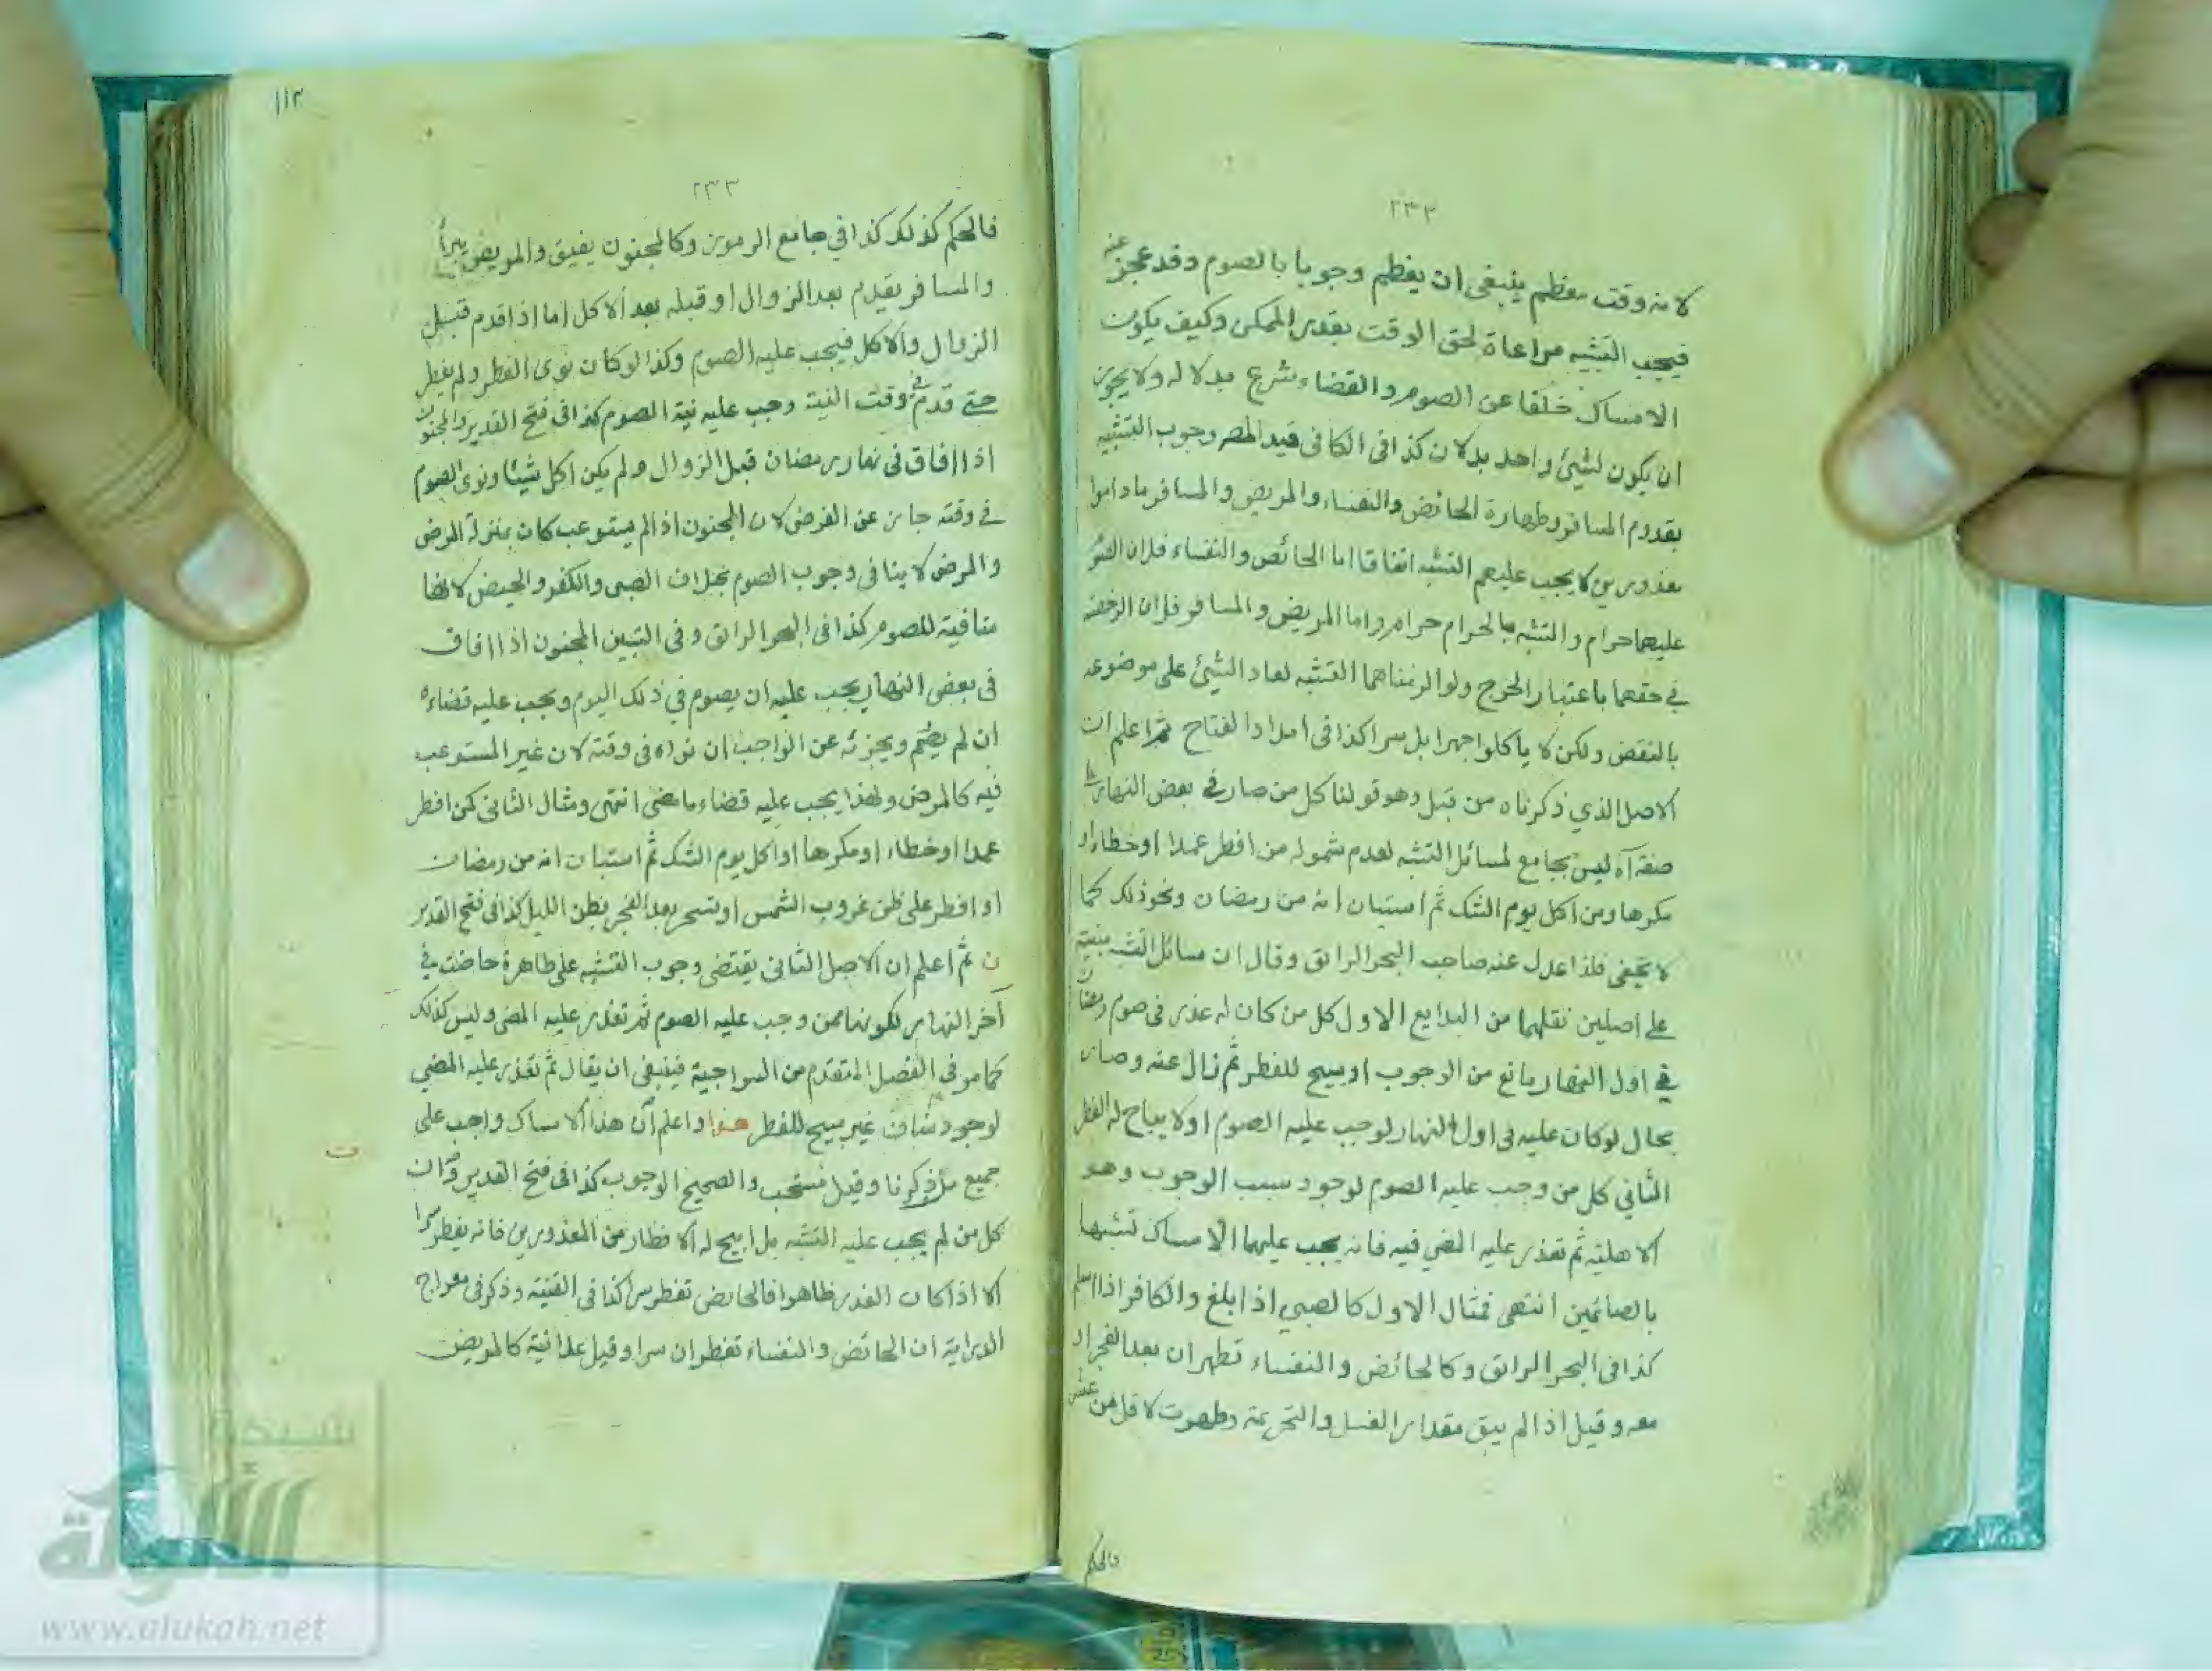 ٢٣٢
لانه وقت معظم ينبغى ان يعظم وجوبا بالصوم وقد عجز عنه
فيجب التشبه مراعاة لحق الوقت بقدر الممكن وكيف يكون
الامساك خلفا عن الصوم والقضاء شرع بدلا له ولا يجوز
ان يكون لشئ واحد بدلان كذا فى الكافى قيد المص وجوب التشبه
بقدوم المسافر وطهارة الحائض والنفساء والمريض والمسافر ماداموا
معذورين لا يجب عليهم التشبه اتفاقا اما الحائض والنفساء فلان الصوم
عليهما حرام والتشبه بالحرام حرام واما المريض والمسافر فلان الرخصة
في حقهما باعتبار الحرج ولو الزمناهما التشبه لعاد الشئ على موضوعه
بالنقض ولكن لا يأكلوا جهرا بل سرا كذا فى امداد الفتاح ثم اعلم ان
الاصل الذي ذكرناه من قبل وهو قولنا كل من صار في بعض النهار على
صفة آه ليس بجامع لمسائل التشبه لعدم شموله من افطر عمدا او خطاء او
مكرها ومن اكل يوم الشك ثم استبان انه من رمضان ونحو ذلك كما
لا يخفى فلذا عدل عنه صاحب البحر الرائق وقال ان مسائل التشبه مبنية
على اصلين نقلهما من البدايع الاول كل من كان له عذر فى صوم رمضان
في اول النهار مانع من الوجوب او مبيح للفطر ثم زال عنه وصار
بحال لو كان عليه فى اول النهار لوجب عليه الصوم او لا يباح له الفطر
الثاني كل من وجب عليه الصوم لوجود سبب الوجوب وهو
الاهلية ثم تعذر عليه المضي فيه فانه يجب عليهما الامساك تشبها
بالصائمين انتهى فمثال الاول كالصبي اذا بلغ والكافر اذا اسلم
كذا فى البحر الرائق وكالحائض والنفساء تطهران بعد الفجر او
معه وقيل اذا لم يبق مقدار الغسل والتحريمة وطهرت لاقل من عشر
فالحكم
١١٢
٢٣٣
فالحكم كذلك كذا في جامع الرموز وكالمجنون يفيق والمريض يبرأ
والمسافر يقدم بعد الزوال او قبله بعد الاكل اما اذا قدم قبل
الزوال والاكل فيجب عليه الصوم وكذا لو كان نوى الفطر ولم يفطر
حتى قدم في وقت النية وجب عليه نية الصوم كذا فى فتح القدير والمجنون
اذا افاق فى نهار رمضان قبل الزوال ولم يكن اكل شيئا ونوى الصوم
في وقته جاز عن الفرض لان المجنون اذا لم يستوعب كان بمنزلة المرض
والمرض لا ينافى وجوب الصوم بخلاف الصبى والكفر والحيض لانها
منافية للصوم كذا فى البحر الرائق وفى التبيين المجنون اذا افاق
فى بعض النهار يجب عليه ان يصوم في ذلك اليوم ويجب عليه قضاءه
ان لم يصم ويجزئه عن الواجب ان نواه فى وقته لان غير المستوعب
فيه كالمرض ولهذا يجب عليه قضاء ما مضى انتهى ومثال الثانى كمن افطر
عمدا او خطاء او مكرها او اكل يوم الشك ثم استبان انه من رمضان
او افطر على ظن غروب الشمس او تسحر بعد الفجر بظن الليل كذا فى فتح القدير
ن ثم اعلم ان الاصل الثانى يقتضى وجوب التشبه على طاهرة حاضت في
آخر النهار لكونها ممن وجب عليه الصوم ثم تعذر عليه المضى وليس كذلك
كما مر فى الفصل المتقدم من السراجية فينبغى ان يقال ثم تعذر عليه المضي
لوجود مناف غير مبيح للفطر هذا واعلم ان هذا الامساك واجب على
جميع من ذكرنا وقيل مستحب والصحيح الوجوب كذا فى فتح القدير وان
كل من لم يجب عليه التشبه بل ابيح له الافطار من المعذورين فانه يفطر سرا
الا اذا كان العذر ظاهرا فالحائض تفطر سرا كذا فى القنية وذكر فى معراج
الدراية ان الحائض والنفساء تفطران سرا وقيل علانية كالمريض
ت
شبكة
الألوكة
www.alukah.net